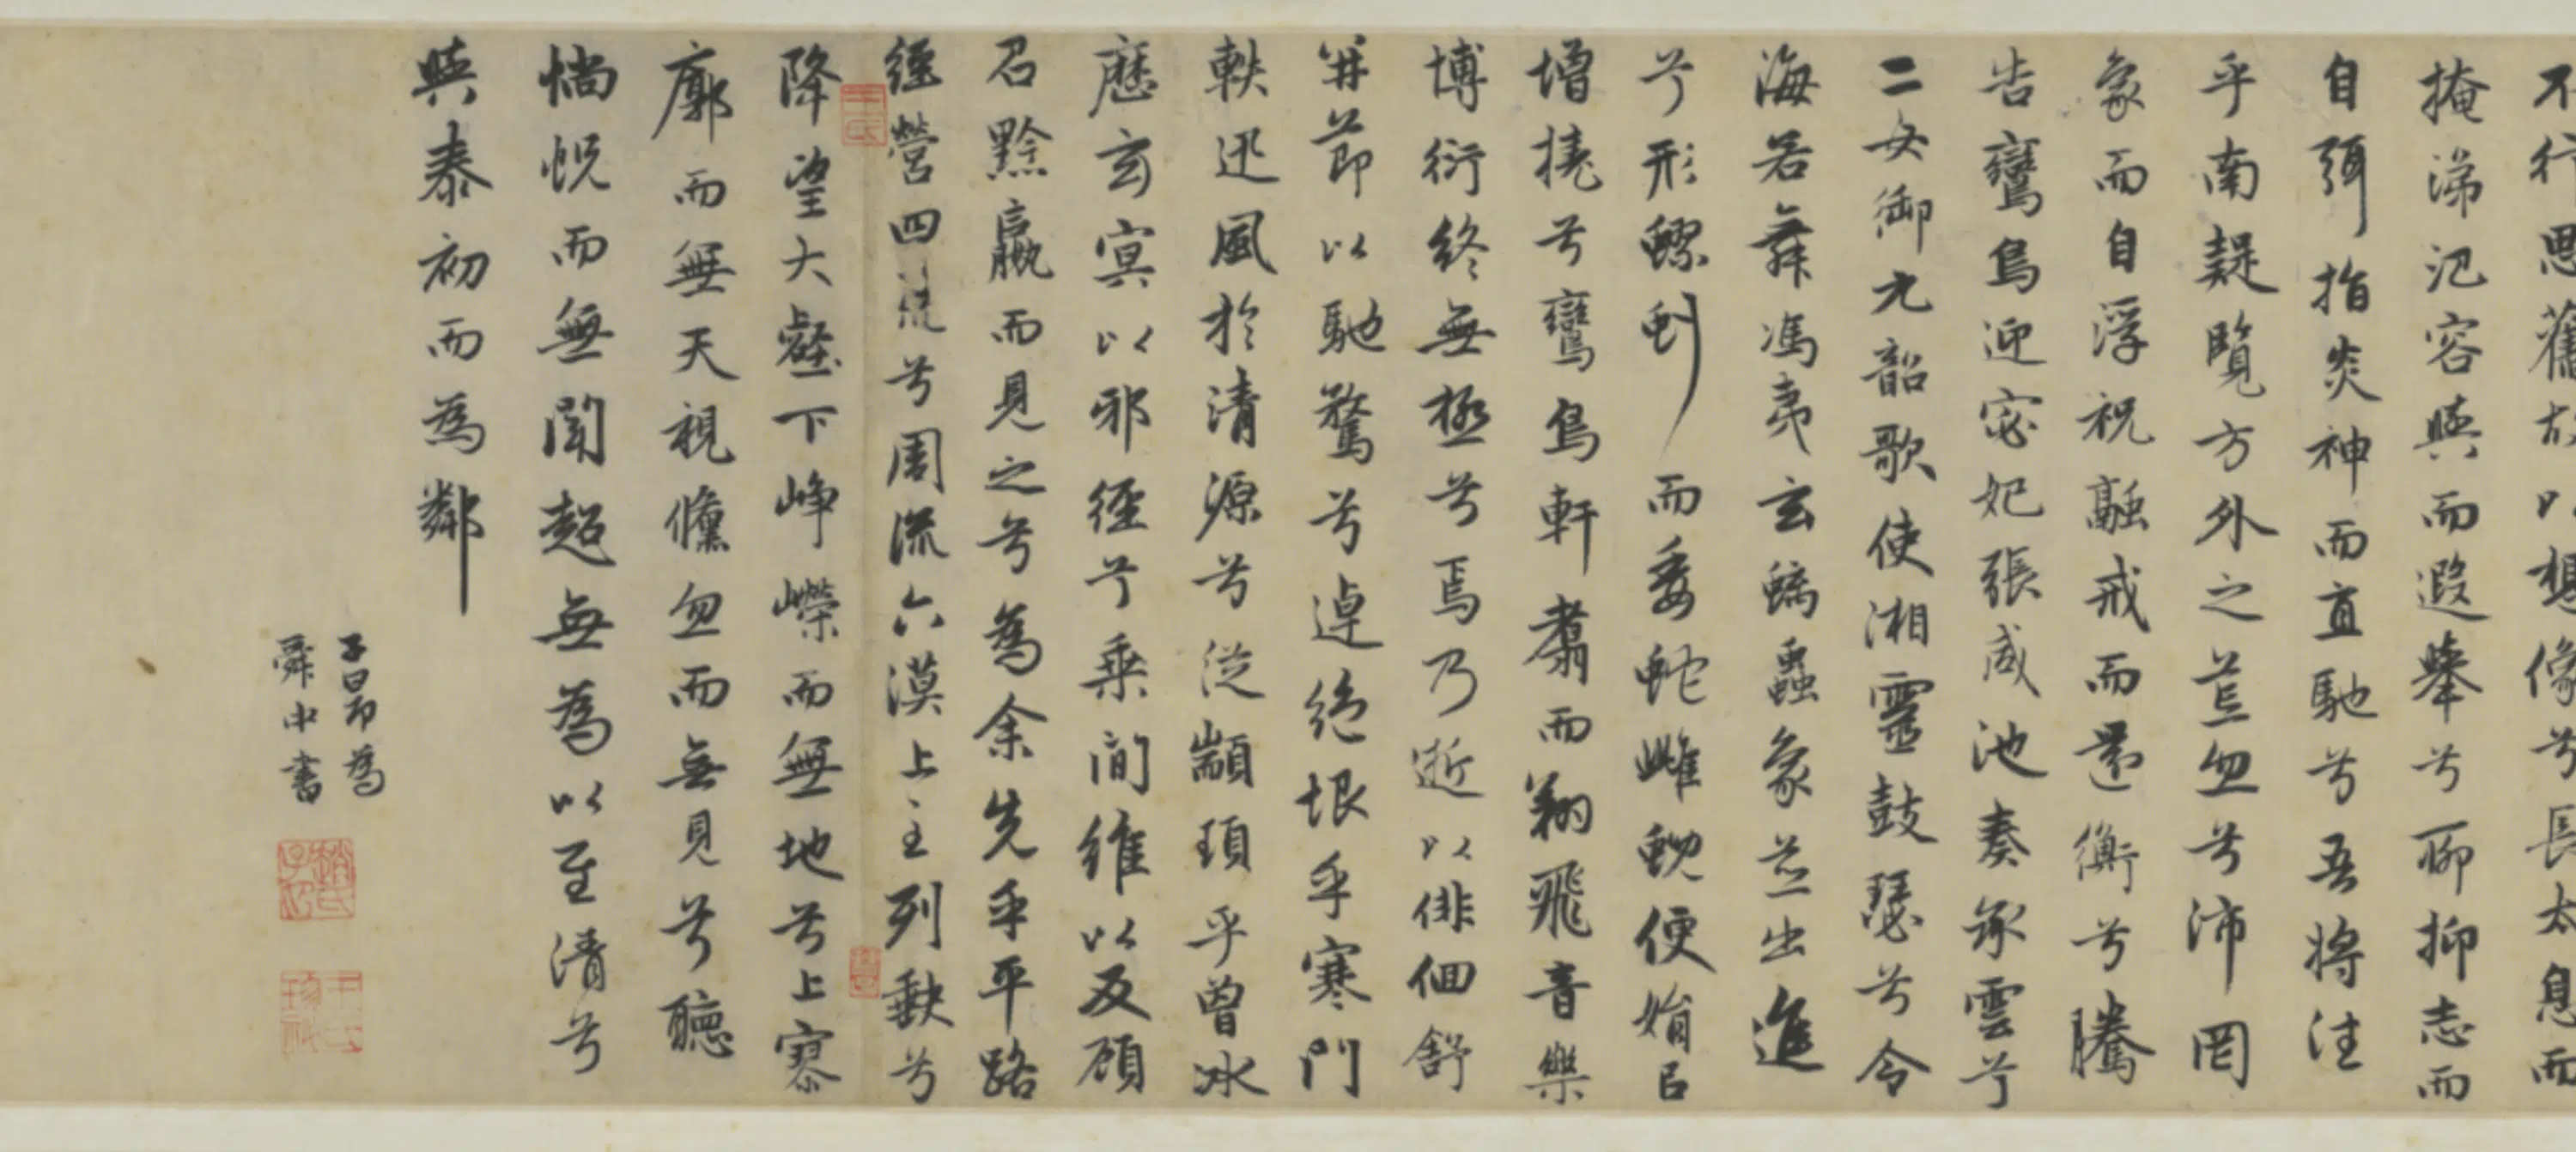 不行思舊故以想像兮長太息而
掩涕氾容與而遐舉兮聊抑志而
自弭指炎神而直馳兮吾將往
乎南疑覽方外之荒忽兮沛罔
象而自浮祝融戒而還衡兮騰
告鸞鳥迎宓妃張咸池奏承雲兮
二女御九韶歌使湘靈鼓瑟兮令
海若舞馮夷玄螭蟲象並出進
兮形蟉虯而委蛇雌蜺便娟以
增撓兮鸞鳥軒翥而翔飛音樂
博衍終無極兮焉乃逝以俳佪舒
并節以馳騖兮逴絕垠乎寒門
軼迅風於清源兮從顓頊乎曾冰
歷玄冥以邪徑兮乘間維以反顧
召黔嬴而見之兮為余先乎平路
經營四荒兮周流六漠上至列缺兮
降望大壑下崢嶸而無地兮上寥
廓而無天視儵忽而無見兮聽
惝怳而無聞超無為以至清兮
與泰初而為鄰
子昂為
舜中書
趙氏子昂